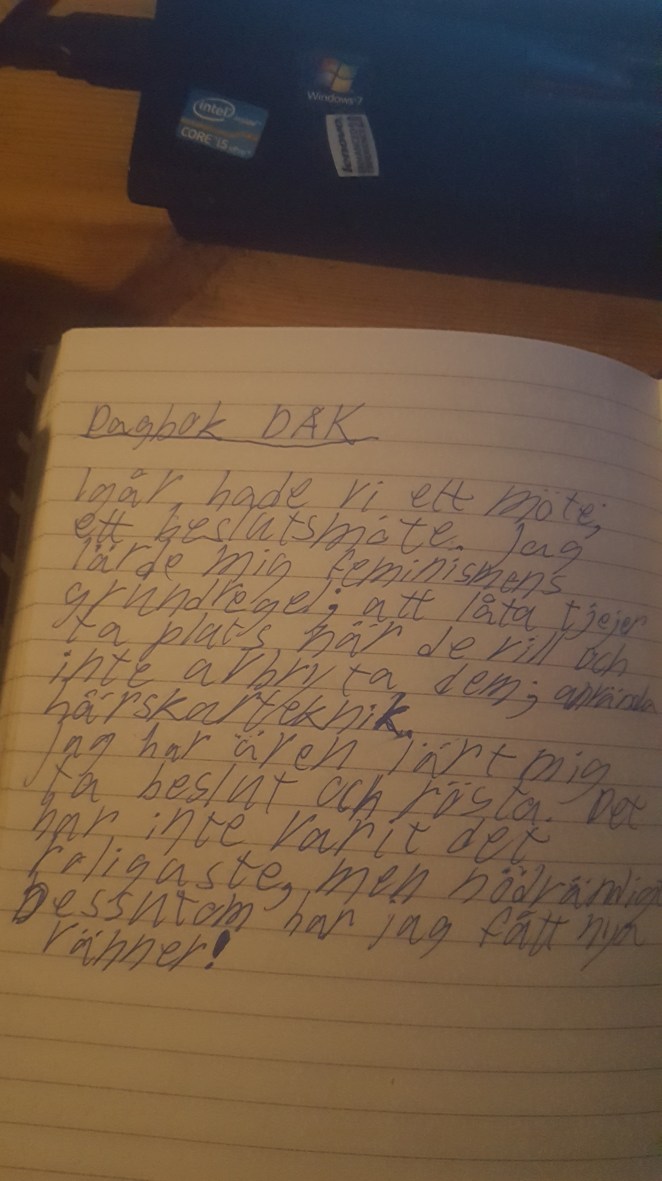 intel inside
CORE i5 vPro
Windows 7
lenovo
Dagbok DAK
Igår hade vi ett möte;
ett beslutsmöte. Jag
lärde mig feminismens
grundregel; att låta tjejer
ta plats när de vill och
inte avbryta dem; använda
härskarteknik.
Jag har även lärt mig
ta beslut och rösta. Det
har inte varit det
roligaste, men nödvändigt
Dessutom har jag fått nya
vänner!